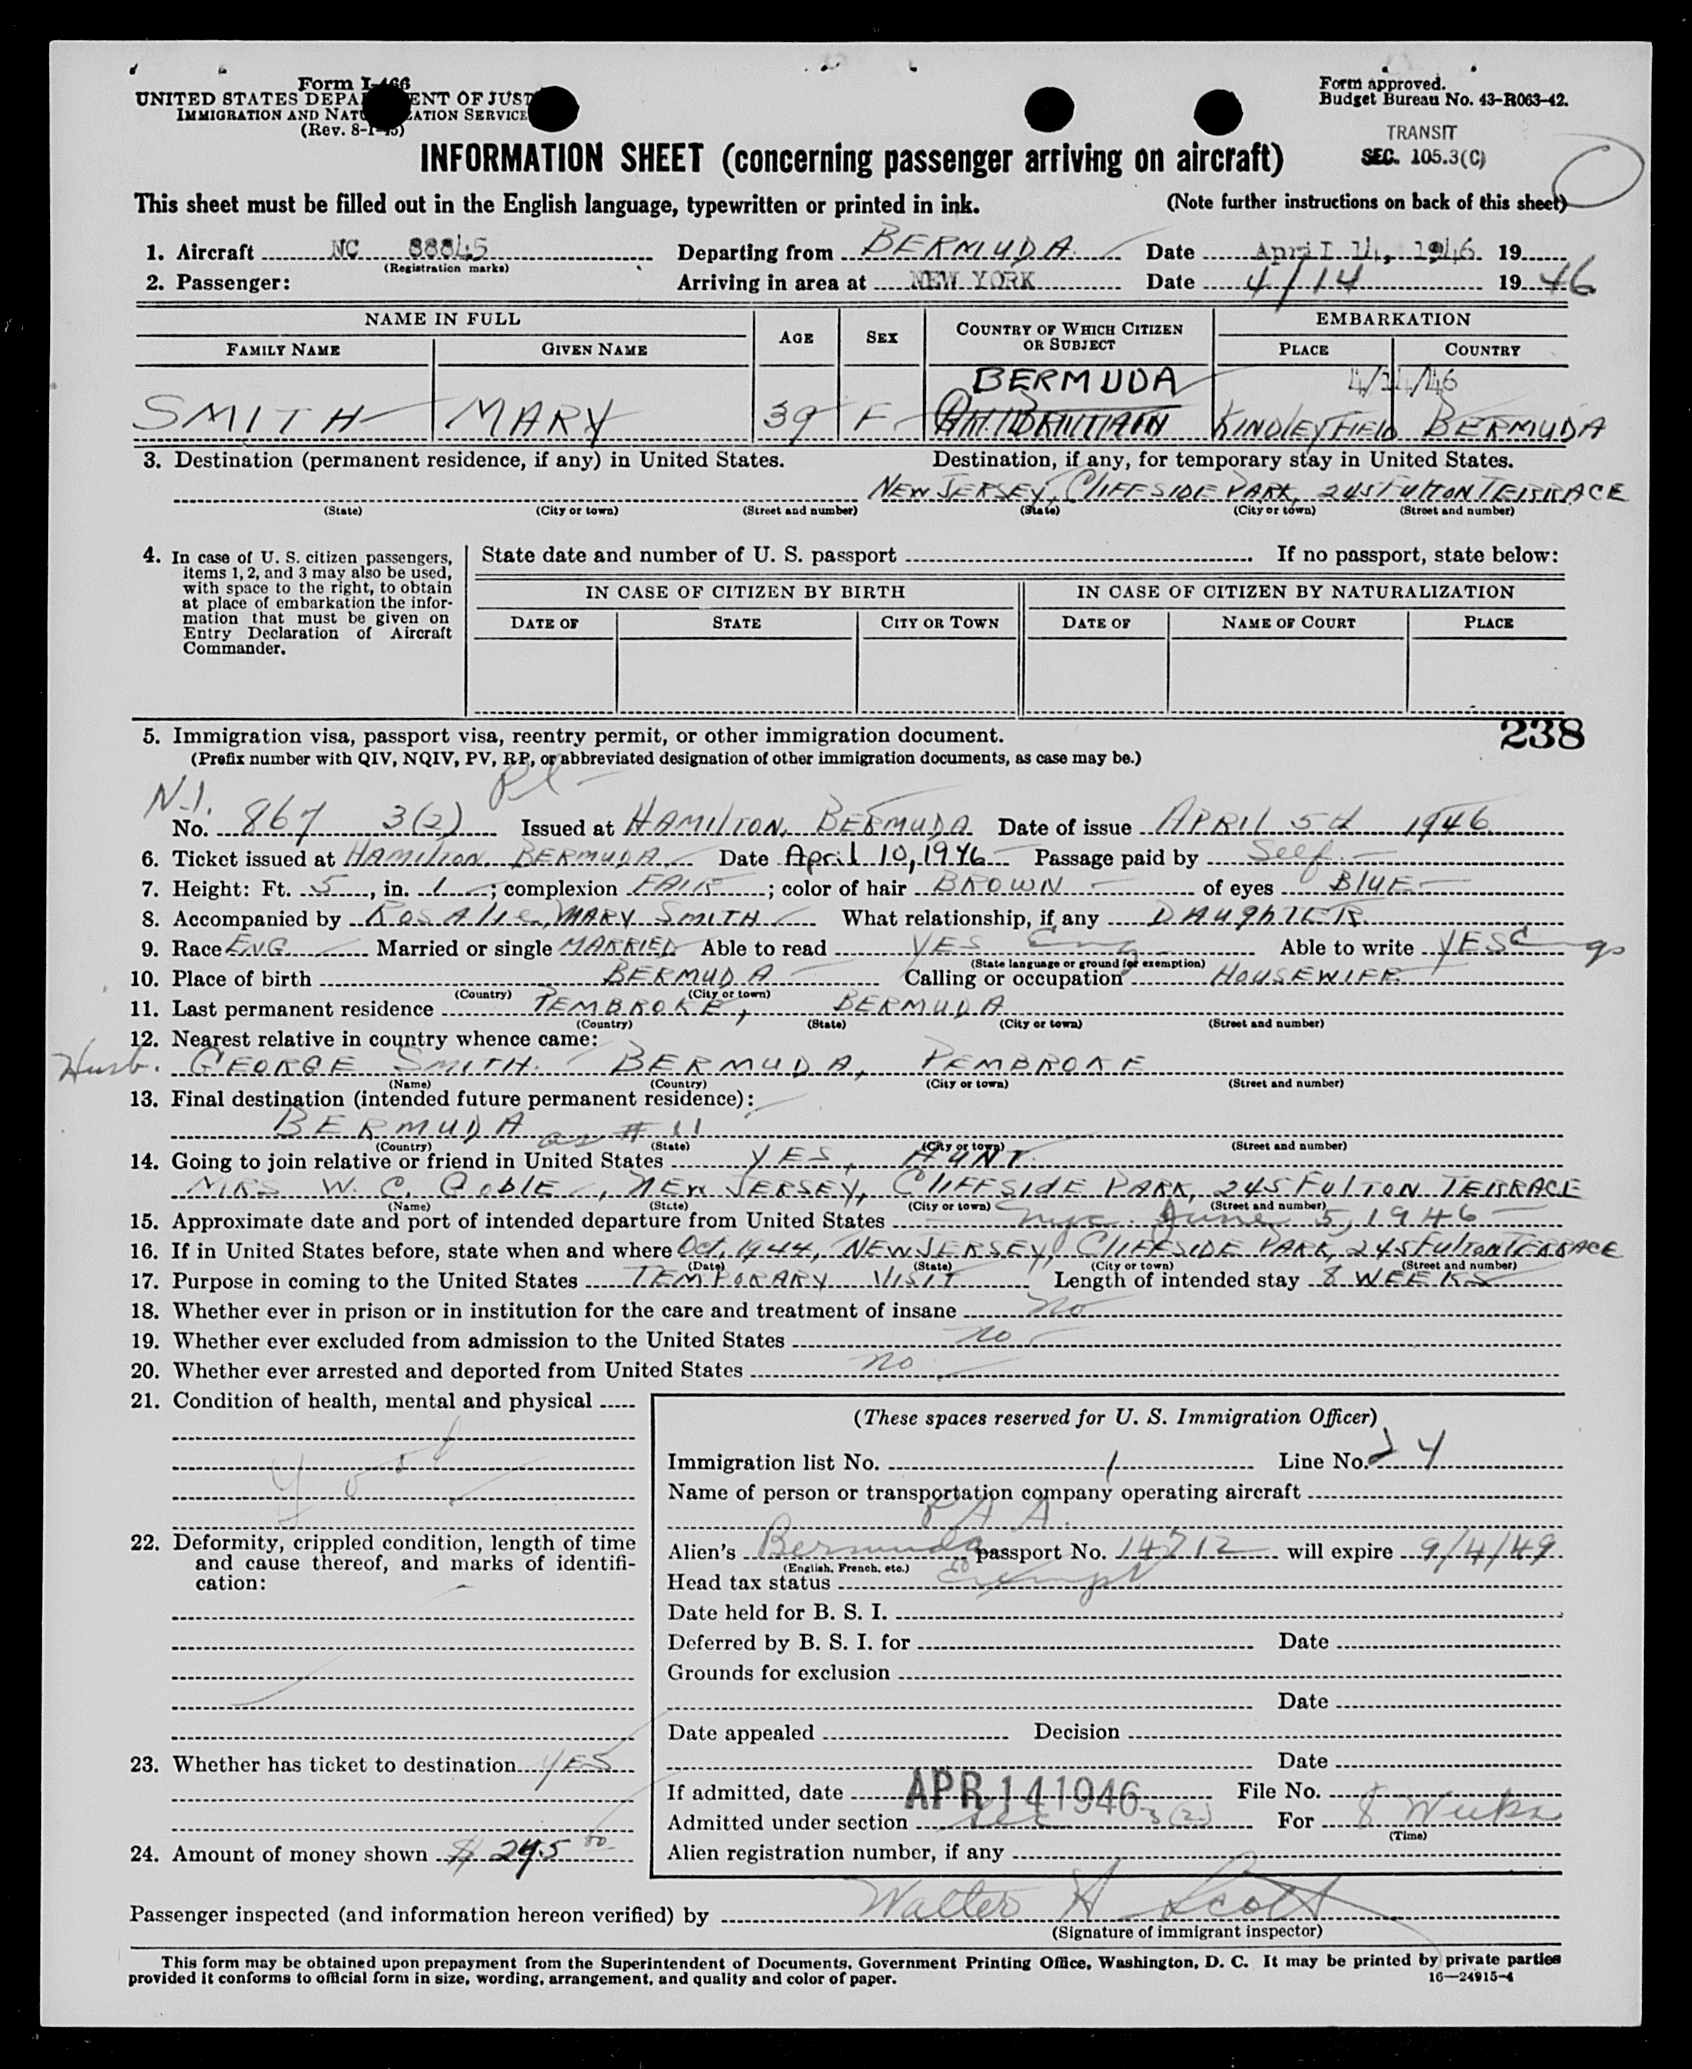 Form I-466
UNITED STATES DEPARTMENT OF JUSTICE
IMMIGRATION AND NATURALIZATION SERVICE
(Rev. 8-1-45)
Form approved.
Budget Bureau No. 43-R063-42.
TRANSIT
SEC. 105.3(C)
INFORMATION SHEET (concerning passenger arriving on aircraft)
This sheet must be filled out in the English language, typewritten or printed in ink. (Note further instructions on back of this sheet)
1. Aircraft NC 88845 Departing from BERMUDA Date April 14, 1946 19
(Registration marks)
2. Passenger: Arriving in area at NEW YORK Date 4/14 1946
NAME IN FULL AGE SEX COUNTRY OF WHICH CITIZEN OR SUBJECT EMBARKATION
FAMILY NAME GIVEN NAME PLACE COUNTRY
BERMUDA 4/14/46
SMITH MARY 39 F GT. BRITAIN KINDLEY FIELD BERMUDA
3. Destination (permanent residence, if any) in United States. Destination, if any, for temporary stay in United States.
NEW JERSEY, CLIFFSIDE PARK, 245 FULTON TERRACE
(State) (City or town) (Street and number) (State) (City or town) (Street and number)
4. In case of U. S. citizen passengers, items 1, 2, and 3 may also be used, with space to the right, to obtain at place of embarkation the information that must be given on Entry Declaration of Aircraft Commander.
State date and number of U. S. passport If no passport, state below:
IN CASE OF CITIZEN BY BIRTH IN CASE OF CITIZEN BY NATURALIZATION
DATE OF STATE CITY OR TOWN DATE OF NAME OF COURT PLACE
238
5. Immigration visa, passport visa, reentry permit, or other immigration document.
(Prefix number with QIV, NQIV, PV, RP, or abbreviated designation of other immigration documents, as case may be.)
N.I.
No. 867 3(2) Issued at HAMILTON, BERMUDA Date of issue APRIL 5th 1946
6. Ticket issued at HAMILTON, BERMUDA Date April 10, 1946 Passage paid by Self
7. Height: Ft. 5, in. 1; complexion FAIR; color of hair BROWN of eyes BLUE
8. Accompanied by ROSALIE MARY SMITH What relationship, if any DAUGHTER
9. Race ENG. Married or single MARRIED Able to read YES Eng Able to write YES Eng
(State language or ground for exemption)
10. Place of birth BERMUDA Calling or occupation HOUSEWIFE
(Country) (City or town)
11. Last permanent residence PEMBROKE, BERMUDA
(Country) (State) (City or town) (Street and number)
12. Nearest relative in country whence came:
Husb. GEORGE SMITH. BERMUDA, PEMBROKE
(Name) (Country) (City or town) (Street and number)
13. Final destination (intended future permanent residence):
BERMUDA as # 11
(Country) (State) (City or town) (Street and number)
14. Going to join relative or friend in United States YES, AUNT.
MRS W. C. GOBLE, NEW JERSEY, CLIFFSIDE PARK, 245 FULTON TERRACE
(Name) (State) (City or town) (Street and number)
15. Approximate date and port of intended departure from United States nyc. June 5, 1946
16. If in United States before, state when and where Oct. 1944, NEW JERSEY, CLIFFSIDE PARK, 245 FULTON TERRACE
(Date) (State) (City or town) (Street and number)
17. Purpose in coming to the United States TEMPORARY VISIT Length of intended stay 8 WEEKS
18. Whether ever in prison or in institution for the care and treatment of insane NO
19. Whether ever excluded from admission to the United States NO
20. Whether ever arrested and deported from United States NO
21. Condition of health, mental and physical
Good
22. Deformity, crippled condition, length of time and cause thereof, and marks of identification:
23. Whether has ticket to destination YES
24. Amount of money shown $ 245 00
(These spaces reserved for U. S. Immigration Officer)
Immigration list No. 1 Line No. 24
Name of person or transportation company operating aircraft
P A A.
Alien's Bermuda passport No. 14712 will expire 9/4/49
(English, French, etc.)
Head tax status Exempt
Date held for B. S. I.
Deferred by B. S. I. for Date
Grounds for exclusion
Date
Date appealed Decision
Date
If admitted, date APR 14 1946 File No.
Admitted under section Sec 3(2) For 8 Weeks
(Time)
Alien registration number, if any
Passenger inspected (and information hereon verified) by Walter H Scott
(Signature of immigrant inspector)
This form may be obtained upon prepayment from the Superintendent of Documents, Government Printing Office, Washington, D. C. It may be printed by private parties
provided it conforms to official form in size, wording, arrangement, and quality and color of paper. 16—24915-4